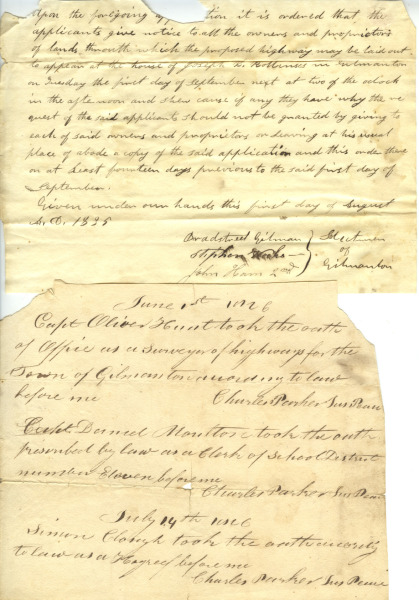 Upon the foregoing application it is ordered that, the
applicants give notice to all the owners and proprietors
of lands, through which the proposed highway may be laid out
to appear at the house of Joseph L. in Gilmanton
on Tuesday the first day of September next at two of the oclock
in the afternoon and shew cause if any they have why the re
quest of the said applicants should not be granted by giving to
each of said owners and proprietors or leaving at his usual
place of abode a copy of the said application and this order thereon
on at least fourteen days previous to the said first day of
September.
Given under our hands this first day of August
A.D. 1835
Bradstreet Gilman
Stephen Weeks
John Ham 2nd
Selectmen
of
Gilmanton
June 1st 1826
Capt Oliver Hunt took the oath
of Office as a Surveyor of highways for the
Town of Gilmanton according to law
before me Charles Parker Jus Peace
Capt Daniel Moulton took the oath
prescribed by law as a Clerk of School District
number Eleven before me
Charles Parker Jus Peace
July 14th 1826
Simon Clough took the oath according
to law as a before me
Charles Parker Jus Peace